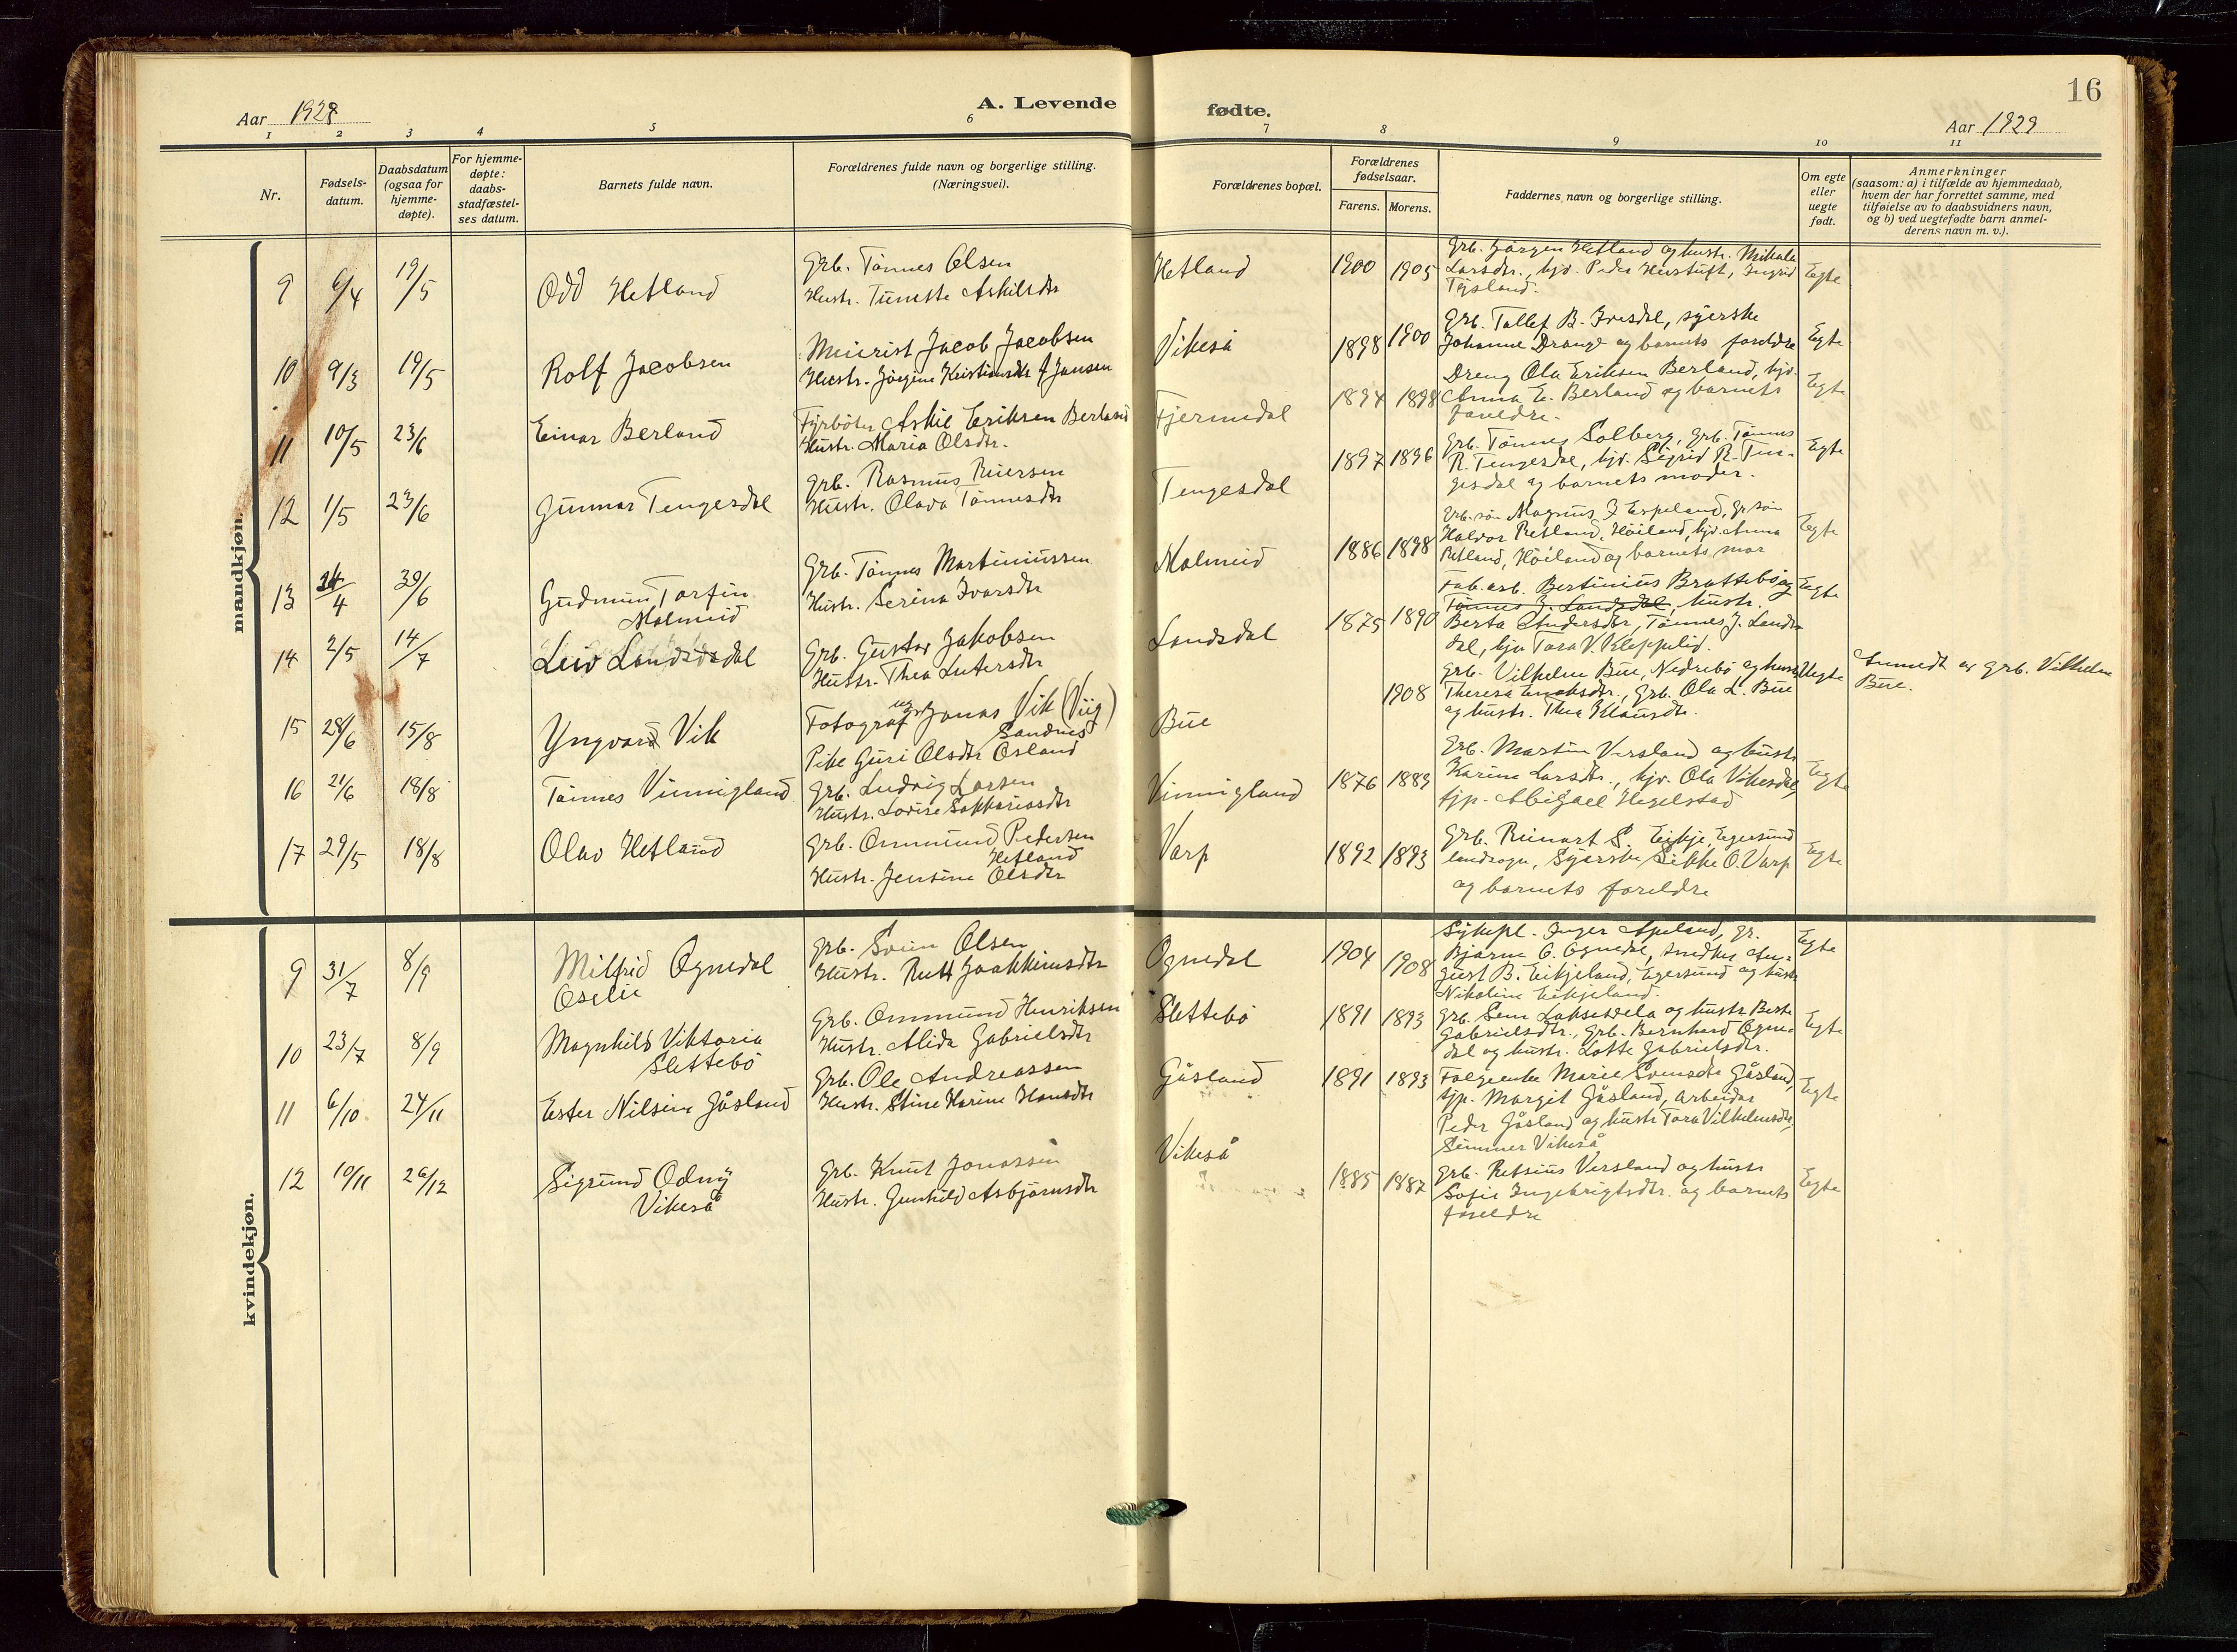 16
Aar 1929
A. Levende
fødte.
Aar 1929
1 2 3 4 5 6 7 8 9 10 11
Nr.
Fødsels-
datum.
Daabsdatum
(ogsaa for
hjemme-
døpte).
For hjemme-
døpte:
daabs-
stadfæstel-
ses datum.
Barnets fulde navn.
Forældrenes fulde navn og borgerlige stilling.
(Næringsvei).
Forældrenes bopæl.
Forældrenes
fødselsaar.
Farens. Morens.
Faddernes navn og borgerlige stilling.
Om egte
eller
uegte
født.
Anmerkninger
(saasom: a) i tilfælde av hjemmedaab,
hvem der har forrettet samme, med
tilføielse av to daabsvidners navn,
og b) ved uegtefødte barn anmel-
derens navn m. v.).
mandkjøn.
9 6/4 19/5 Odd Hetland
Grb. Tönnes Olsen
Hustr. Tuneste Askilsdtr
Hetland 1900 1905
Grb. Jörgen Hetland og hustr. Mikale
Larsdtr., kjv. Peder Herstuft, Ingrid
Tysland.
Egte
10 9/3 19/5 Rolf Jacobsen
Meierist Jacob Jacobsen
Hustr. Jörgine Kristiansdtr f Jansen
Vikeså 1898 1900
Grb. Tallef B. Ivesdal, syerske
Johanne Drange og barnets foreldre
Egte
11 10/5 23/6 Einar Berland
Fyrböter Askil Eriksen Berland
Hustr. Maria Olsdtr.
Fjermedal 1894 1898
Dreng Ola Eriksen Berland, kjv.
Anna E. Berland og barnets
foreldre.
Egte
12 1/5 23/6 Gunnar Tengesdal
Grb. Rasmus Reiersen
Hustr. Olava Tönnesdtr
Tengesdal 1897 1896
Grb. Tönnes Solberg, Grb. Tönnes
R. Tengesdal, kjv. Sigrid R. Ten-
gesdal og barnets moder.
Egte
13 24/4 30/6 Gudmun Torfin
Malmeid
Grb. Tönnes Martiniussen
Hustr. Serina Ivarsdtr
Malmeid 1886 1898
Grb. sön Magnus J Espeland, Gr sön
Halvor Retland, Höiland, kjv. Anna
Retland, Höiland og barnets mor
Egte
14 2/5 14/7 Leiv Landsdal
Grb. Gustav Jakobsen
Hustr. Thea Lutersdtr
Landsdal 1875 1890
Fab. arb. Bertinius Brattebö og
Tönnes J. Landsdal, hustr.
Berta Andersdtr, Tönnes J. Lands-
dal, kjv Tora V. Kleppelid.
Egte
15 28/6 15/8 Yngvard Vik
Fotograf ugift Jonas Vik (Viig)
Sandnes
Pike Guri Olsdtr Osland
Bue 1908
Grb. Vilhelm Bue, Nedrebö og hustr
Theresa Enoksdtr., Grb. Ola L. Bue
og hustr. Thea Klausdtr.
Uegte
Anmeldt av Grb. Vilhelm
Bue.
16 21/6 18/8 Tönnes Vinnigland
Grb. Ludvig Larsen
Hustr. Lovise Sakkariasdtr
Vinnigland 1876 1889
Grb. Martin Versland og hustr
Karine Larsdtr., kjv. Ola Vikesdal,
tjp. Abigael Hegelstad
Egte
17 29/5 18/8 Olav Hetland
Grb. Ommund Pedersen
Hetland
Hustr. Jensine Olsdtr
Varp 1892 1893
Grb. Reinart S. Eikje, Egersund
landsogn, Syerske Sikke O. Varp
og barnets foreldre
Egte
kvindekjøn.
9 31/7 8/9 Milfrid Ognedal
Oselie
Grb. Svein Olsen
Hustr. Rutt Joakkimsdtr
Ognedal 1904 1908
Sykepl. Inger Apeland, gr.
Bjarne O. Ognedal, snedker Au-
gust B. Eikjeland, Egersund og hustr
Nikoline Eikjeland.
Egte
10 23/7 8/9 Magnhild Viktoria
Slettebö
Grb. Ommund Henriksen
Hustr. Alida Gabrielsdtr
Slettebö 1891 1893
Grb. Sem Laksesvela og hustr Berte
Gabrielsdtr., Grb. Bernhard Ogne-
dal og hustr. Lotte Gabrielsdtr.
Egte
11 6/10 24/11 Ester Nilsine Gåsland
Grb. Ole Andreassen
Hustr. Stine Karine Hansdtr
Gåsland 1891 1893
Folgeenke Marie Svensdtr Gåsland,
tjp. Margit Gåsland, arbeider
Peder Gåsland og hustr Tora Vilhelmsdtr,
Sömmer Vikeså
Egte
12 10/11 26/12 Sigrund Odny
Vikeså
Grb. Knut Jonassen
Hustr. Gunhild Asbjörnsdtr
Vikeså 1885 1887
Grb. Retsius Versland og hustr
Sofie Ingebrigtsdtr. og barnets
foreldre
Egte